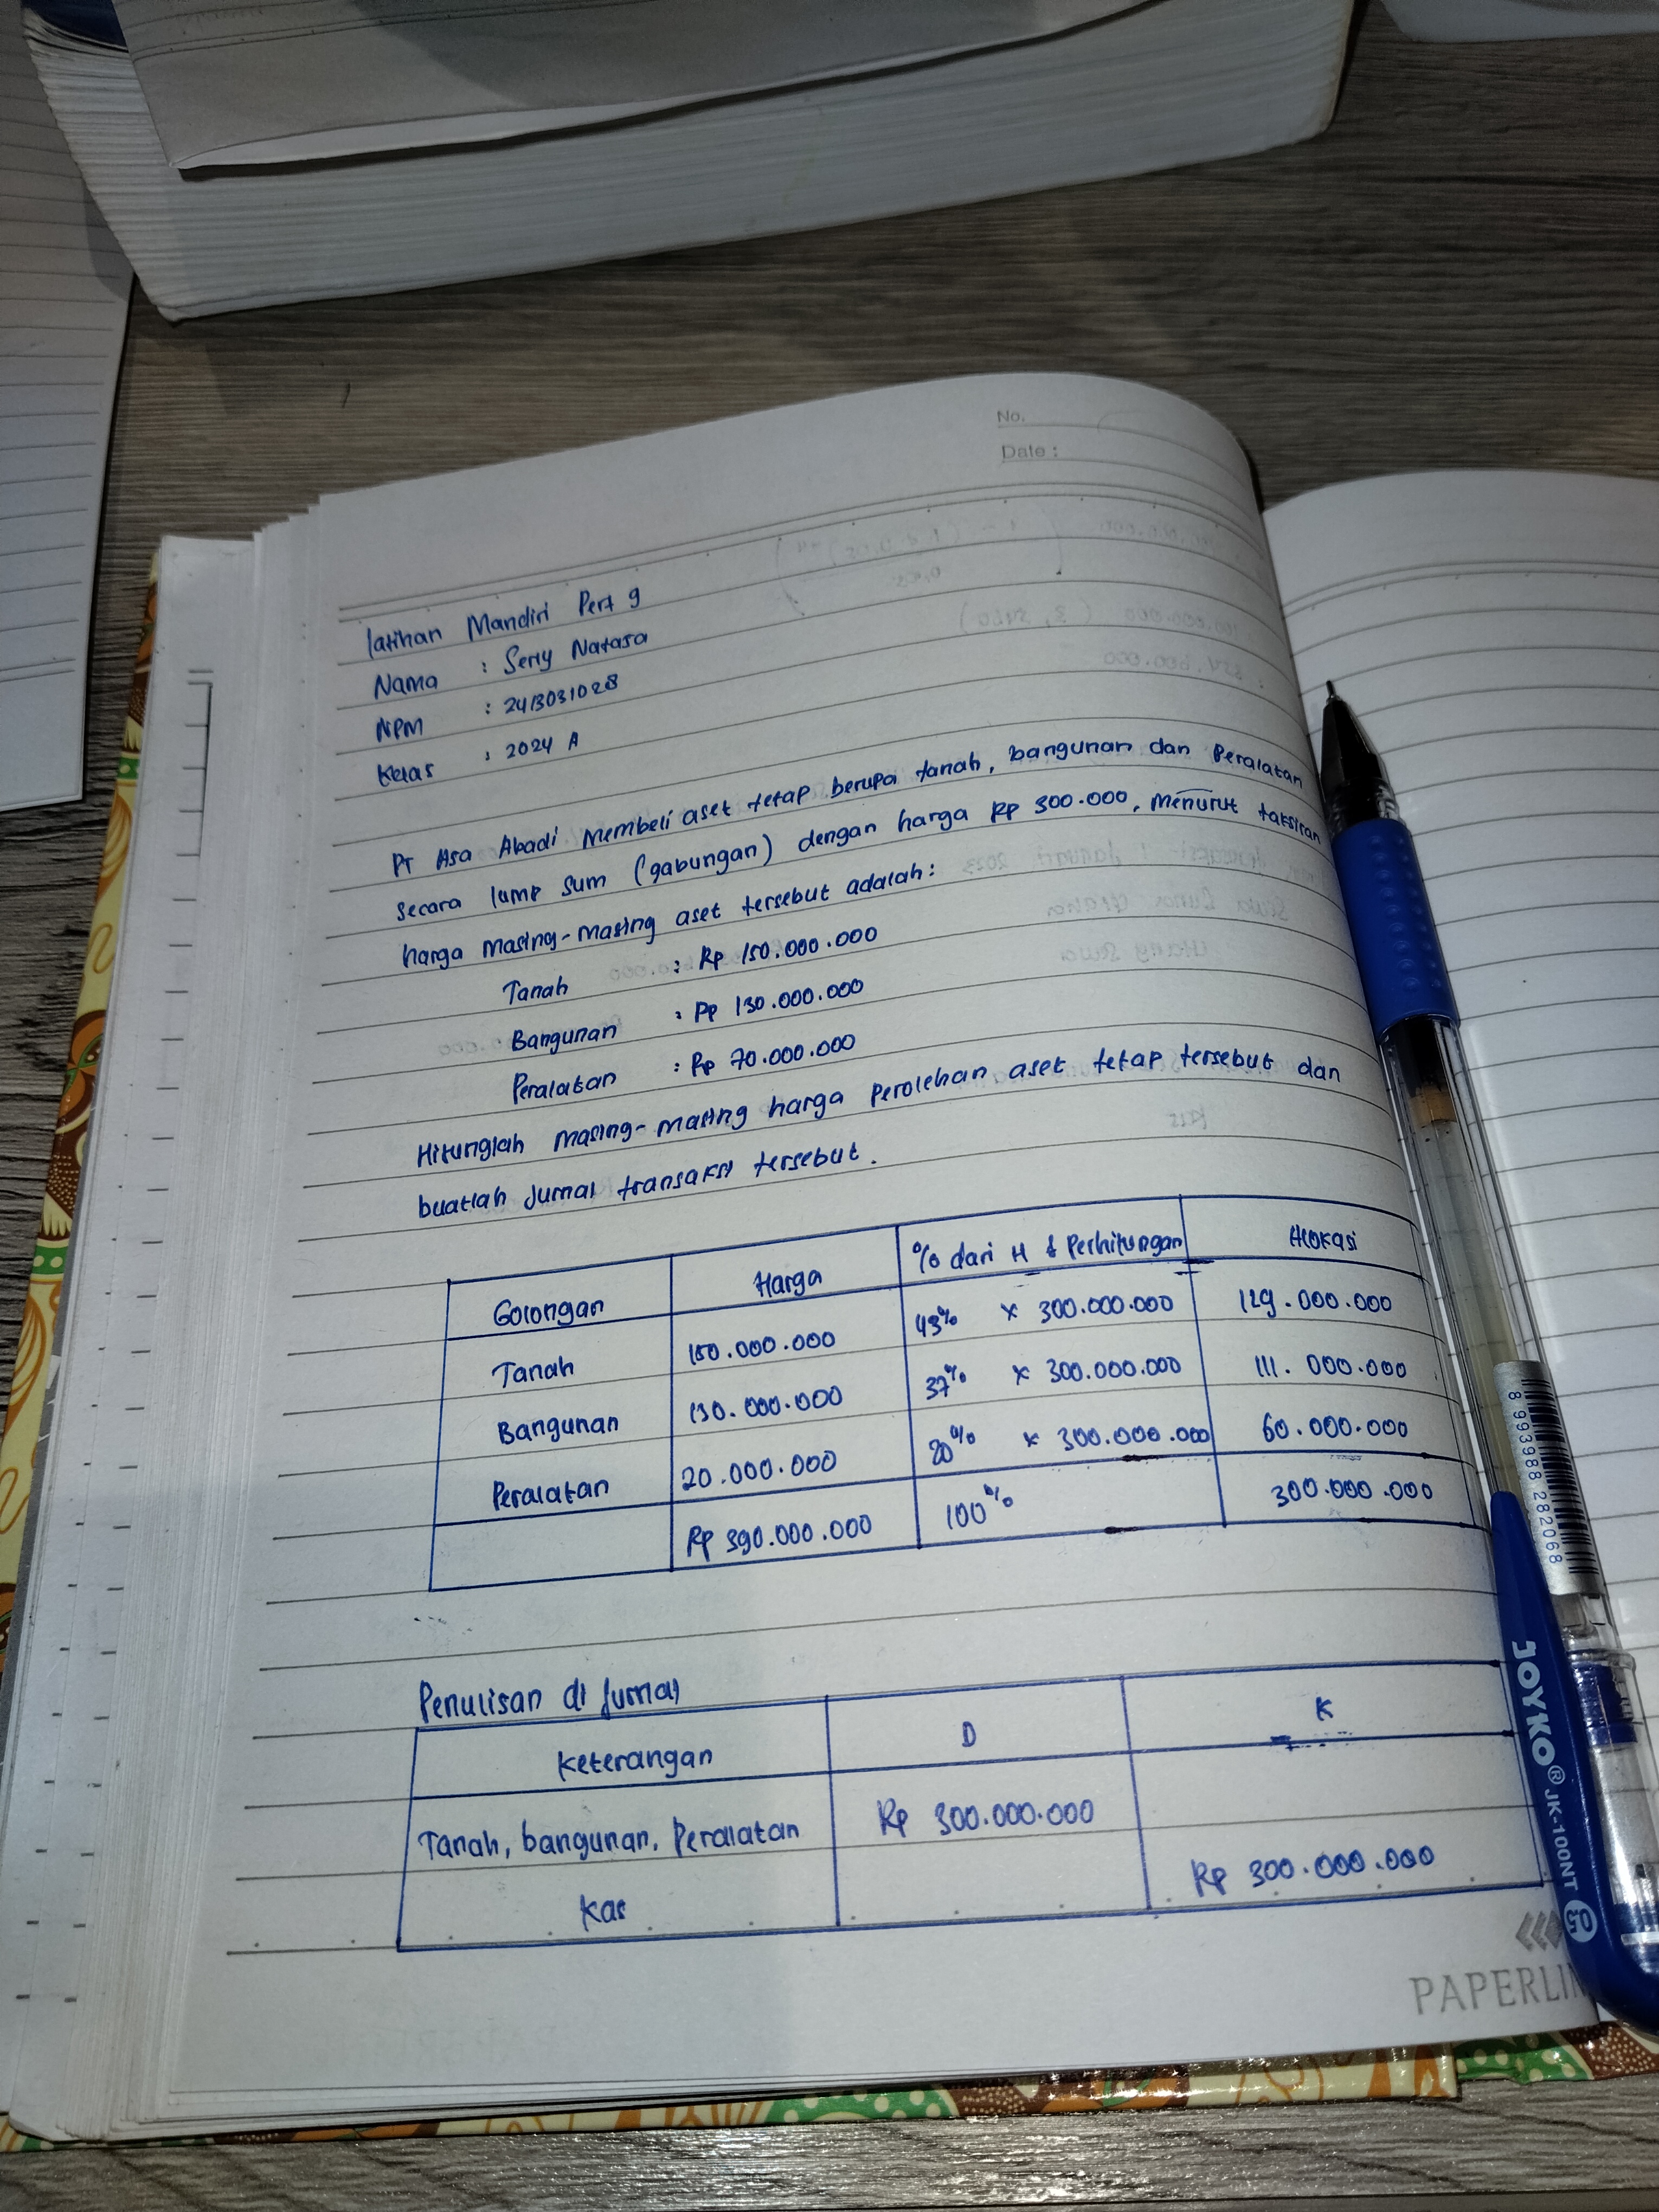 No.
Date :
latihan Mandiri Pert 9
Nama : Serly Natasa
NPM : 2413031028
Kelas : 2024 A
PT Asa Abadi Membeli aset tetap berupa tanah, bangunan dan Peralatan
secara lump sum (gabungan) dengan harga Rp 300.000, Menurut taksiran
harga masing-masing aset tersebut adalah:
Tanah : Rp 150.000.000
Bangunan : Rp 130.000.000
Peralatan : Rp 70.000.000
Hitunglah masing-masing harga Perolehan aset tetap tersebut dan
buatlah jurnal transaksi tersebut.
Golongan Harga % dari H & Perhitungan Alokasi
Tanah 150.000.000 43% x 300.000.000 129.000.000
Bangunan 130.000.000 37% x 300.000.000 111.000.000
Peralatan 20.000.000 20% x 300.000.000 60.000.000
Rp 390.000.000 100% 300.000.000
Penulisan di jurnal
Keterangan D K
Tanah, bangunan, Peralatan Rp 300.000.000
Kas Rp 300.000.000
PAPERLIN
JOYKO® JK-100NT 05
8 993988 282068